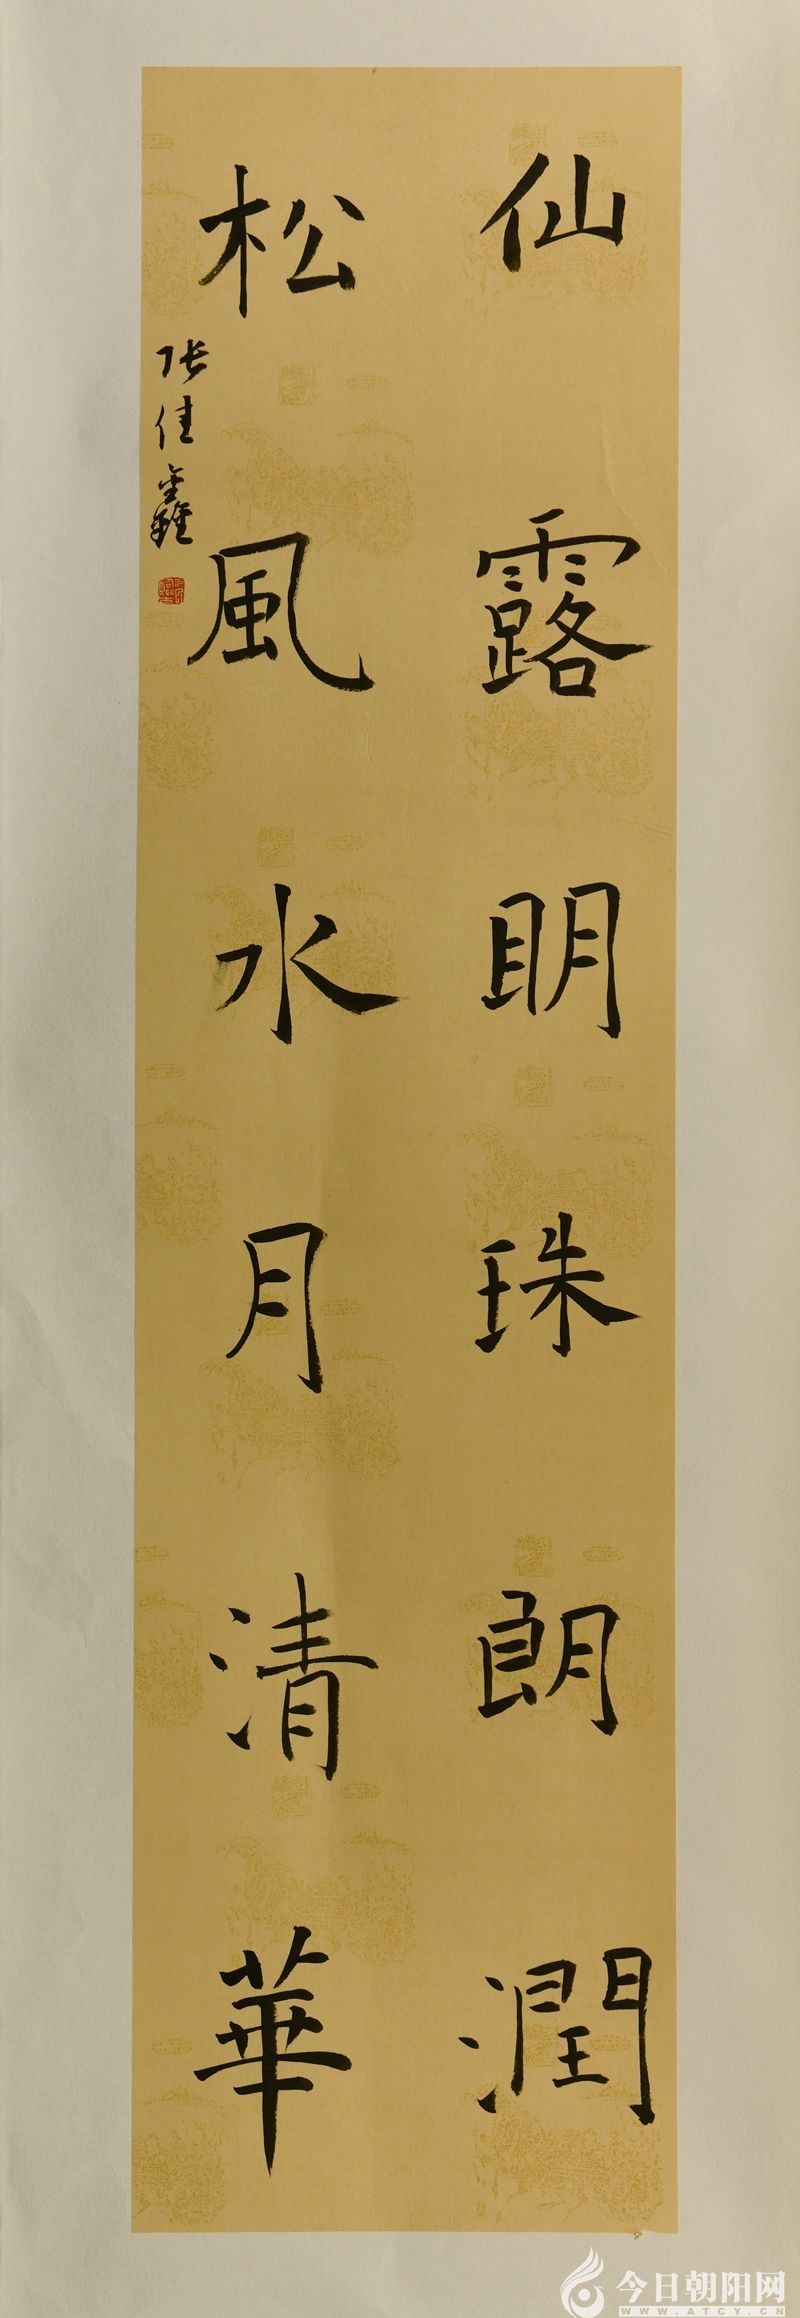 仙露明珠朗潤
松風水月清華
张佳鑫
今日朝阳网
WWW.ATCY.CN